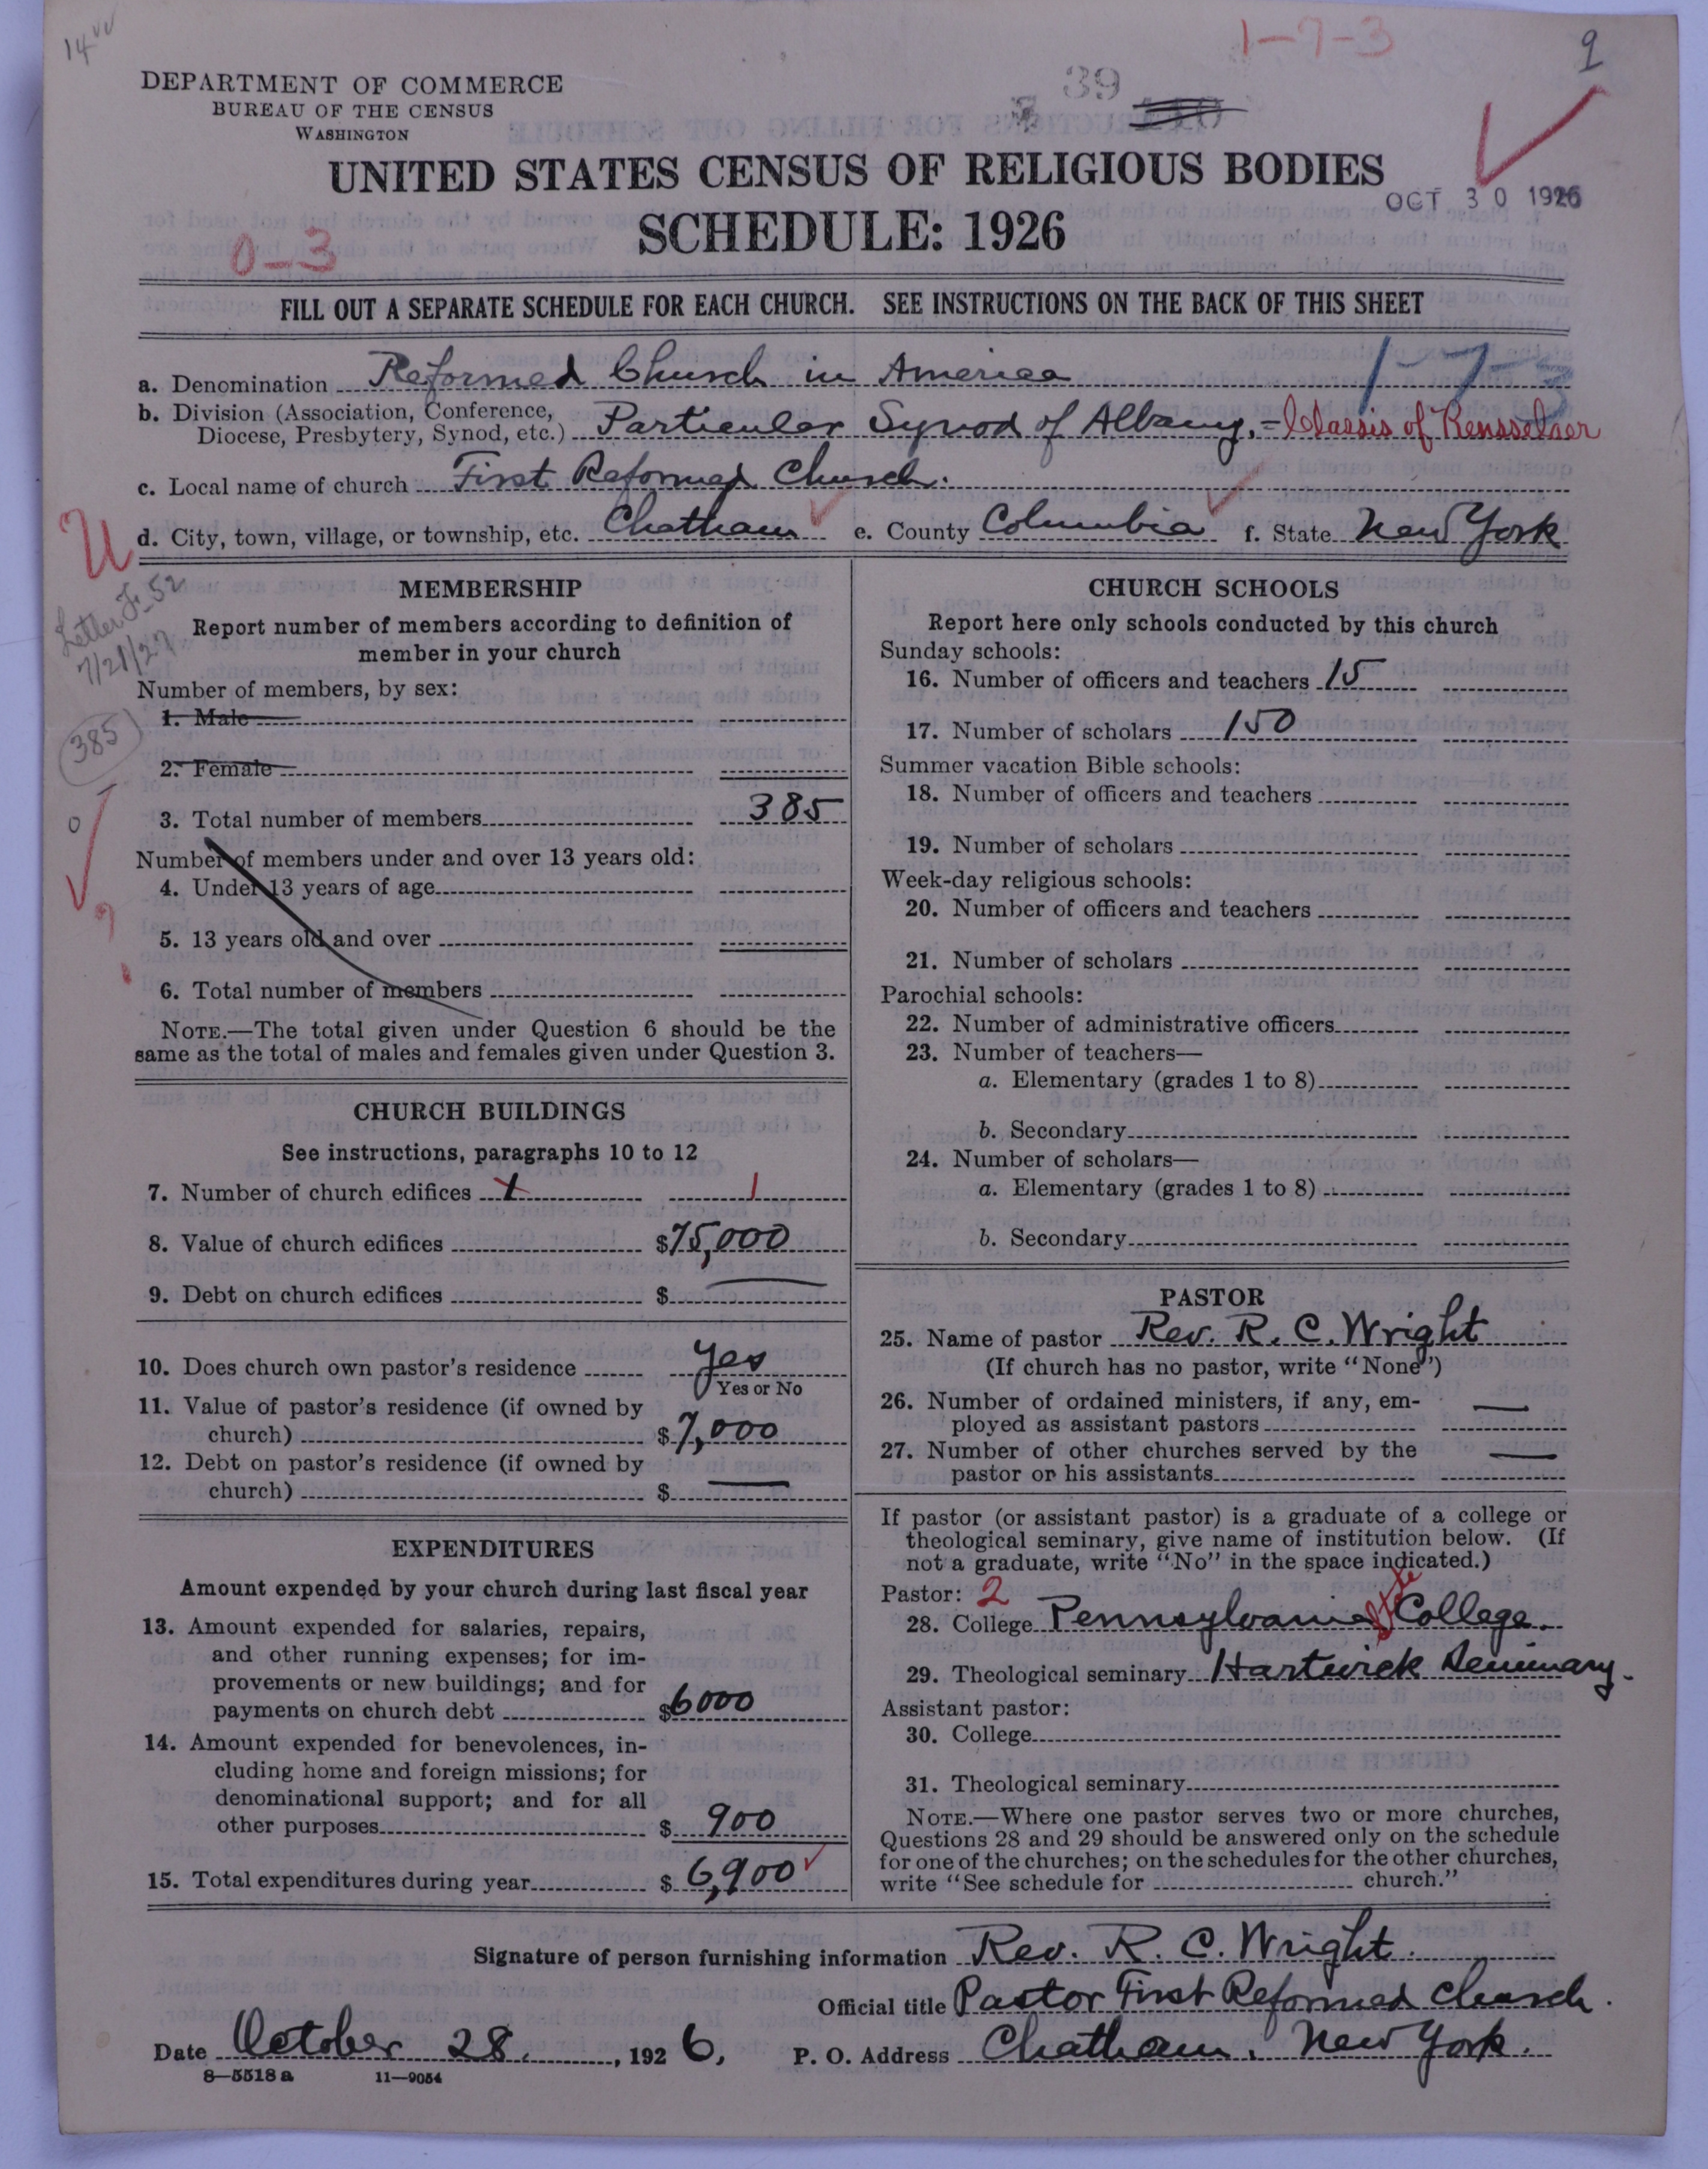 14
1-7-3
9
DEPARTMENT OF COMMERCE
BUREAU OF THE CENSUS
WASHINGTON
39
UNITED STATES CENSUS OF RELIGIOUS BODIES
OCT 30 1926
SCHEDULE: 1926
0-3
FILL OUT A SEPARATE SCHEDULE FOR EACH CHURCH. SEE INSTRUCTIONS ON THE BACK OF THIS SHEET
1-7-3
a. Denomination Reformed Church in America
b. Division (Association, Conference, Diocese, Presbytery, Synod, etc.) Particular Synod of Albany,=Classis of Rensselaer
c. Local name of church First Reformed Church.
U
d. City, town, village, or township, etc. Chatham e. County Columbia f. State New York
Letter Fr-52
7/21/27
MEMBERSHIP
Report number of members according to definition of
member in your church
Number of members, by sex:
1. Male
385
2. Female
3. Total number of members 385
0
Number of members under and over 13 years old:
4. Under 13 years of age
5. 13 years old and over
6. Total number of members
NOTE.—The total given under Question 6 should be the
same as the total of males and females given under Question 3.
CHURCH BUILDINGS
See instructions, paragraphs 10 to 12
7. Number of church edifices 1 1
8. Value of church edifices $75,000
9. Debt on church edifices $ —
10. Does church own pastor's residence Yes
Yes or No
11. Value of pastor's residence (if owned by
church) $7,000
12. Debt on pastor's residence (if owned by
church) $ —
EXPENDITURES
Amount expended by your church during last fiscal year
13. Amount expended for salaries, repairs,
and other running expenses; for im-
provements or new buildings; and for
payments on church debt $6000
14. Amount expended for benevolences, in-
cluding home and foreign missions; for
denominational support; and for all
other purposes $ 900
15. Total expenditures during year $ 6,900
CHURCH SCHOOLS
Report here only schools conducted by this church
Sunday schools:
16. Number of officers and teachers 15
17. Number of scholars 150
Summer vacation Bible schools:
18. Number of officers and teachers
19. Number of scholars
Week-day religious schools:
20. Number of officers and teachers
21. Number of scholars
Parochial schools:
22. Number of administrative officers
23. Number of teachers—
a. Elementary (grades 1 to 8)
b. Secondary
24. Number of scholars—
a. Elementary (grades 1 to 8)
b. Secondary
PASTOR
25. Name of pastor Rev. R. C. Wright
(If church has no pastor, write "None")
26. Number of ordained ministers, if any, em-
ployed as assistant pastors —
27. Number of other churches served by the
pastor or his assistants —
If pastor (or assistant pastor) is a graduate of a college or
theological seminary, give name of institution below. (If
not a graduate, write "No" in the space indicated.)
Pastor: 2
28. College Pennsylvania State College.
29. Theological seminary Hartwick Seminary.
Assistant pastor:
30. College
31. Theological seminary
NOTE.—Where one pastor serves two or more churches,
Questions 28 and 29 should be answered only on the schedule
for one of the churches; on the schedules for the other churches,
write "See schedule for church."
Signature of person furnishing information Rev. R. C. Wright.
Official title Pastor First Reformed Church.
Date October 28, 1926, P. O. Address Chatham, New York.
8—5518 a 11—9054